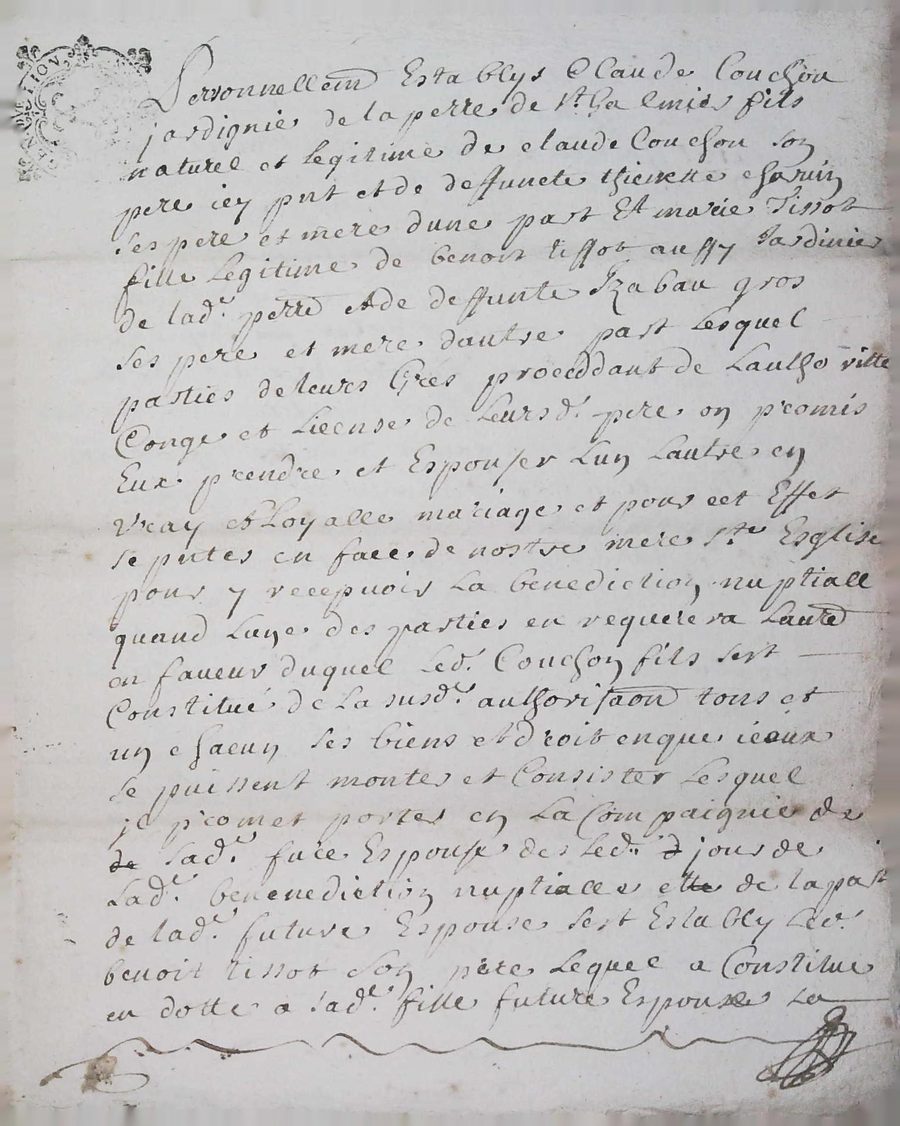 Personnellem Establys Claude Couchon
jardignié de la perre de St Galmier fils
naturel et legitime de claude Couchon son
pere icy pnt et de deffuncte thienette charuin
ses pere et mere dune part Et marie Tissot
fille legitime de benoit tissot aussy Jardinier
de lade perre et de deffunte Izabau gros
ses pere et mere dautre part Lesquel
parties de leurs gres proceddant de Lauthoritte
Conge et License de Leursd pere on promis
Eux prendre et Espouser Lun Lautre en
vray et Loyalle mariage et pour cet Effet
se pntes en face de nostre mere Ste Esglise
pour y recepuoir La benediction nuptialle
quand Lune des parties en requerera Lautre
en faueur duquel Led. Couchon fils sest
Constitué de La susde authorisaon tous et
un chacun ses biens et droit en que iceux
se puissent monter et Consister Lesquel
je promet porter en La Compaignie de
de sade future Espouse des Led. d jour de
Lade benenediction nuptialle ette de la part
de lade future Espouse sest Estably Led.
benoit tissot son pere Lequel a Constitue
en dotte a sade fille future Espouse La